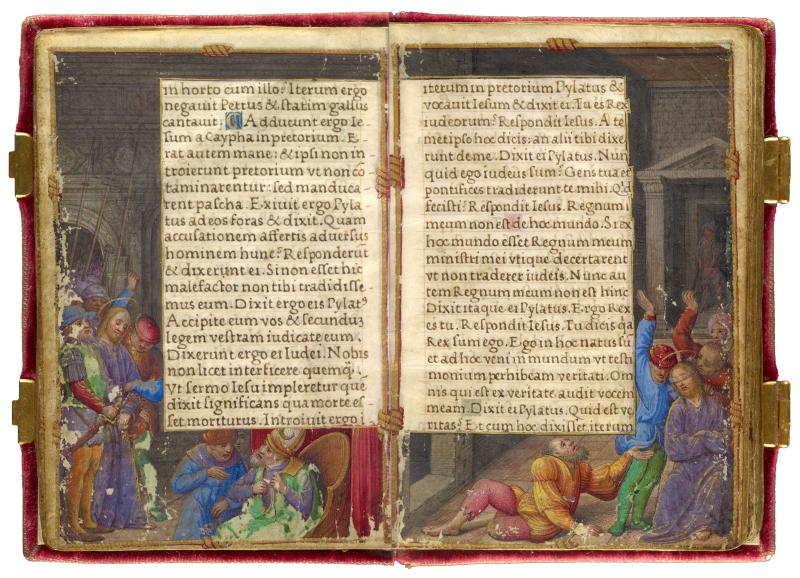 in horto cum illo? Iterum ergo
negauit Petrus & statim gallus
cantauit. Adducunt ergo Ie-
sum a Caypha in pretorium. E-
rat autem mane: & ipsi non in-
troierunt pretorium vt non co-
taminarentur: sed manduca-
rent pascha. Exiuit ergo Pyla-
tus ad eos foras & dixit. Quam
accusationem affertis aduersus
hominem hunc? Responderut
& dixerunt ei. Si non esset hic
malefactor non tibi tradidisse-
mus eum. Dixit ergo eis Pylatꝰ
Accipite eum vos & secunduꝫ
legem vestram iudicate eum.
Dixerunt ergo ei Iudei. Nobis
non licet interficere quemq̃.
Vt sermo Iesu impleretur que
dixit significans qua morte es-
set moriturus. Introiuit ergo i
iterum in pretorium Pylatus &
vocauit Iesum & dixit ei. Tu es Rex
iudeorum? Respondit Iesus. A te-
metipso hoc dicis: an alii tibi dixe
runt de me. Dixit ei Pylatus. Nun
quid ego iudeus sum? Gens tua et
pontifices tradiderunt te mihi. Qd
fecisti? Respondit Iesus. Regnum
meum non est de hoc mundo. Si ex
hoc mundo esset Regnum meum
ministri mei vtique decertarent
vt non traderer iudeis. Nunc au
tem Regnum meum non est hinc
Dixit itaque ei Pylatus. Ergo Rex
es tu. Respondit Iesus. Tu dicis qa
Rex sum ego. Ego in hoc natus su
et ad hoc veni in mundum vt testi
monium perhibeam veritati. Om
nis qui est ex veritate audit vocem
meam. Dixit ei Pylatus. Quid est ve
ritas? Et cum hoc dixisset iterum